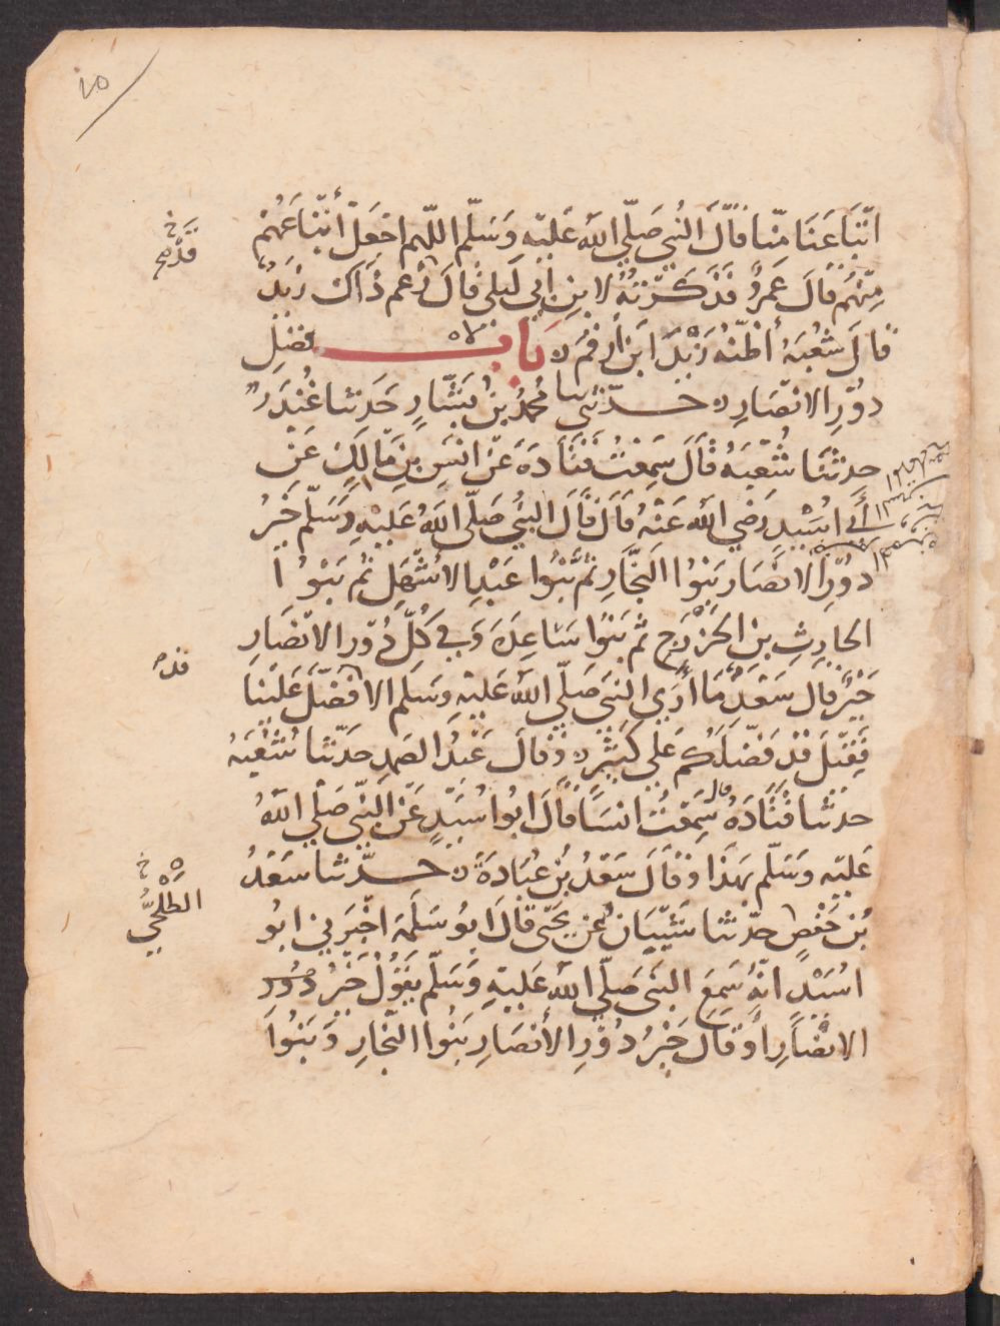 ٢٥
اتباعنا منا قال النبي صلي الله عليه وسلم اللهم اجعل اتباعهم
منهم قال عمرو فذكرته لابن ابي ليلى قال زعم ذاك زيد
قال شعبة اظنه زيد ابن ارقم باب فضل
دور الانصار حدثني محمد بن بشار حدثنا غندر
حدثنا شعبة قال سمعت قتادة عن انس بن مالك عن
أبي اسيد رضي الله عنه قال قال النبي صلى الله عليه وسلم خير
دور الانصار بنوا النجار ثم بنوا عبد الاشهل ثم بنوا
الحارث بن الخزرج ثم بنوا ساعدة وفي كل دور الانصار
خير فقال سعد ما أري النبي صلي الله عليه وسلم الا فضل علينا
فقيل قد فضلكم علي كثير وقال عبد الصمد حدثنا شعبة
حدثنا قتادة قال سمعت انسا قال ابوا سيد عن النبي صلي الله
عليه وسلم بهذا وقال سعد بن عبادة حدثنا سعد
بن حفص حدثنا شيبان عن يحيى قال ابو سلمة اخبرني ابو
اسيد انه سمع النبي صلي الله عليه وسلم يقول خير دور
الانصار او قال خير دور الأنصار بنوا النجار وبنوا
الطلحي